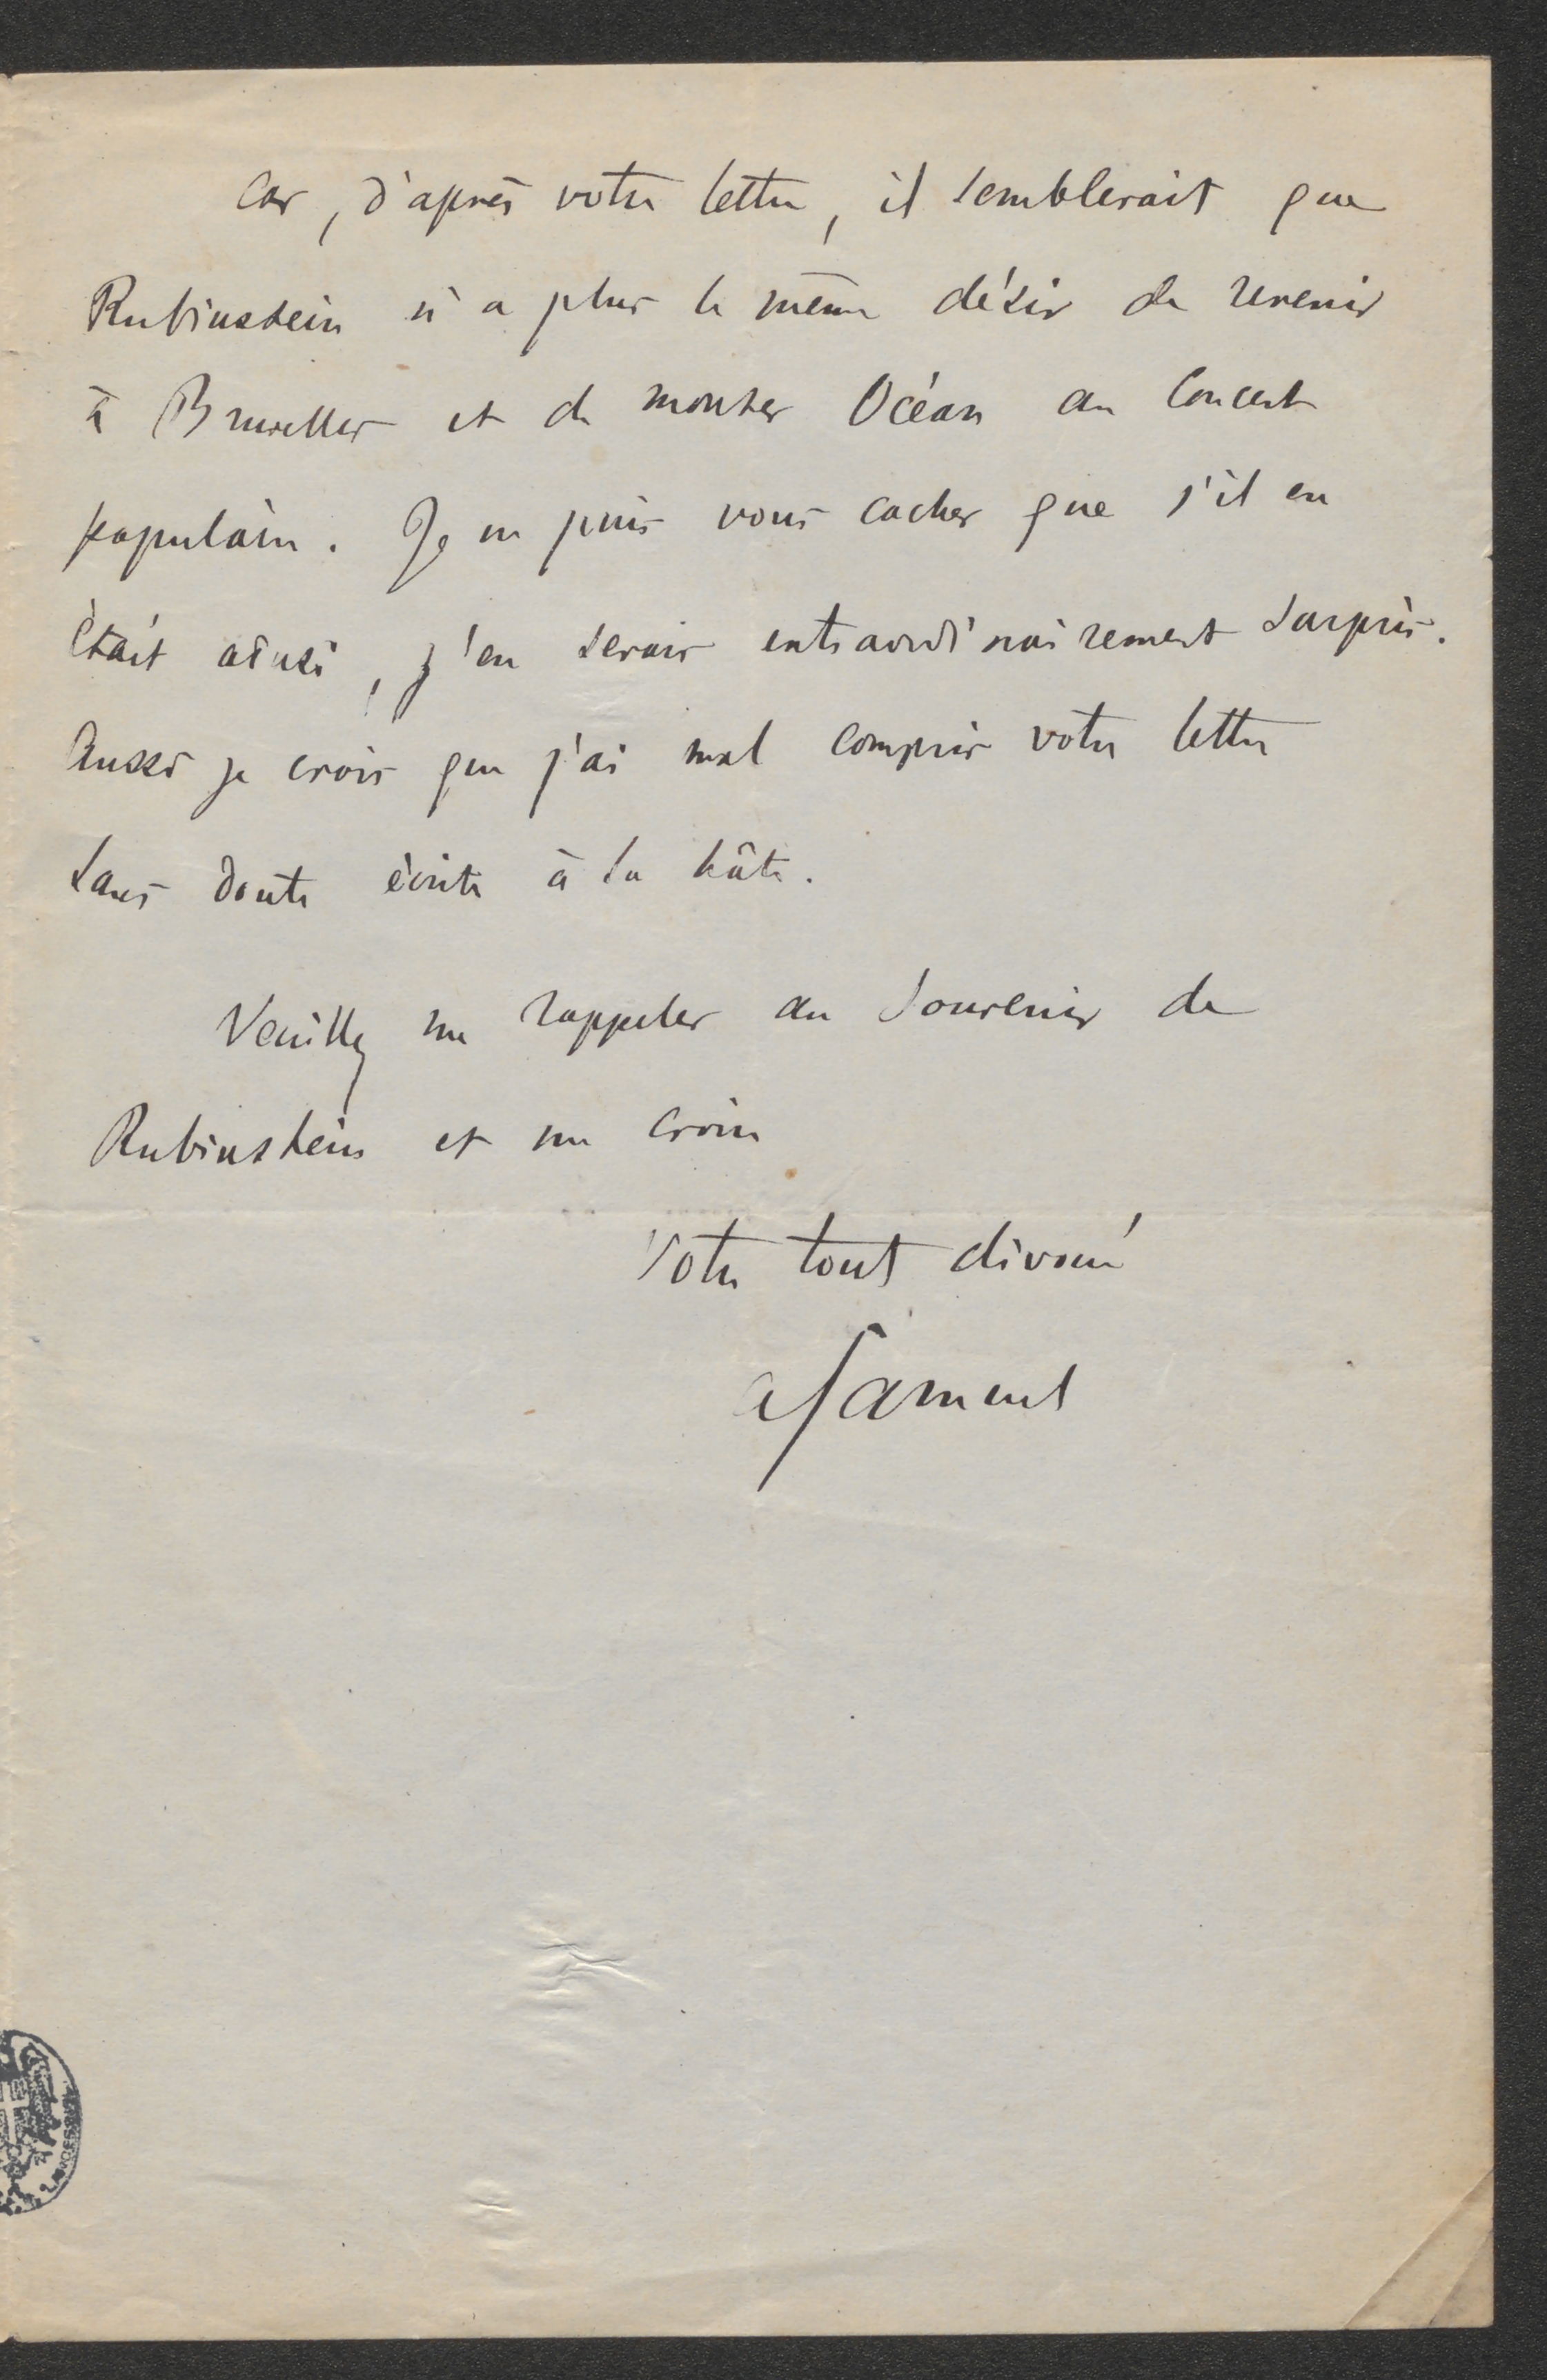 Car, d'après votre lettre, il semblerait que
Rubinstein n'a plus le même désir de revenir
à Bruxelles et de monter Océan au Concert
populaire. Je ne puis vous cacher que s'il en
était ainsi, j'en serais extraordinairement surpris.
Aussi je crois que j'ai mal compris votre lettre
sans doute écrite à la hâte.
Veuillez me rappeler au souvenir de
Rubinstein et me croire
Votre tout dévoué